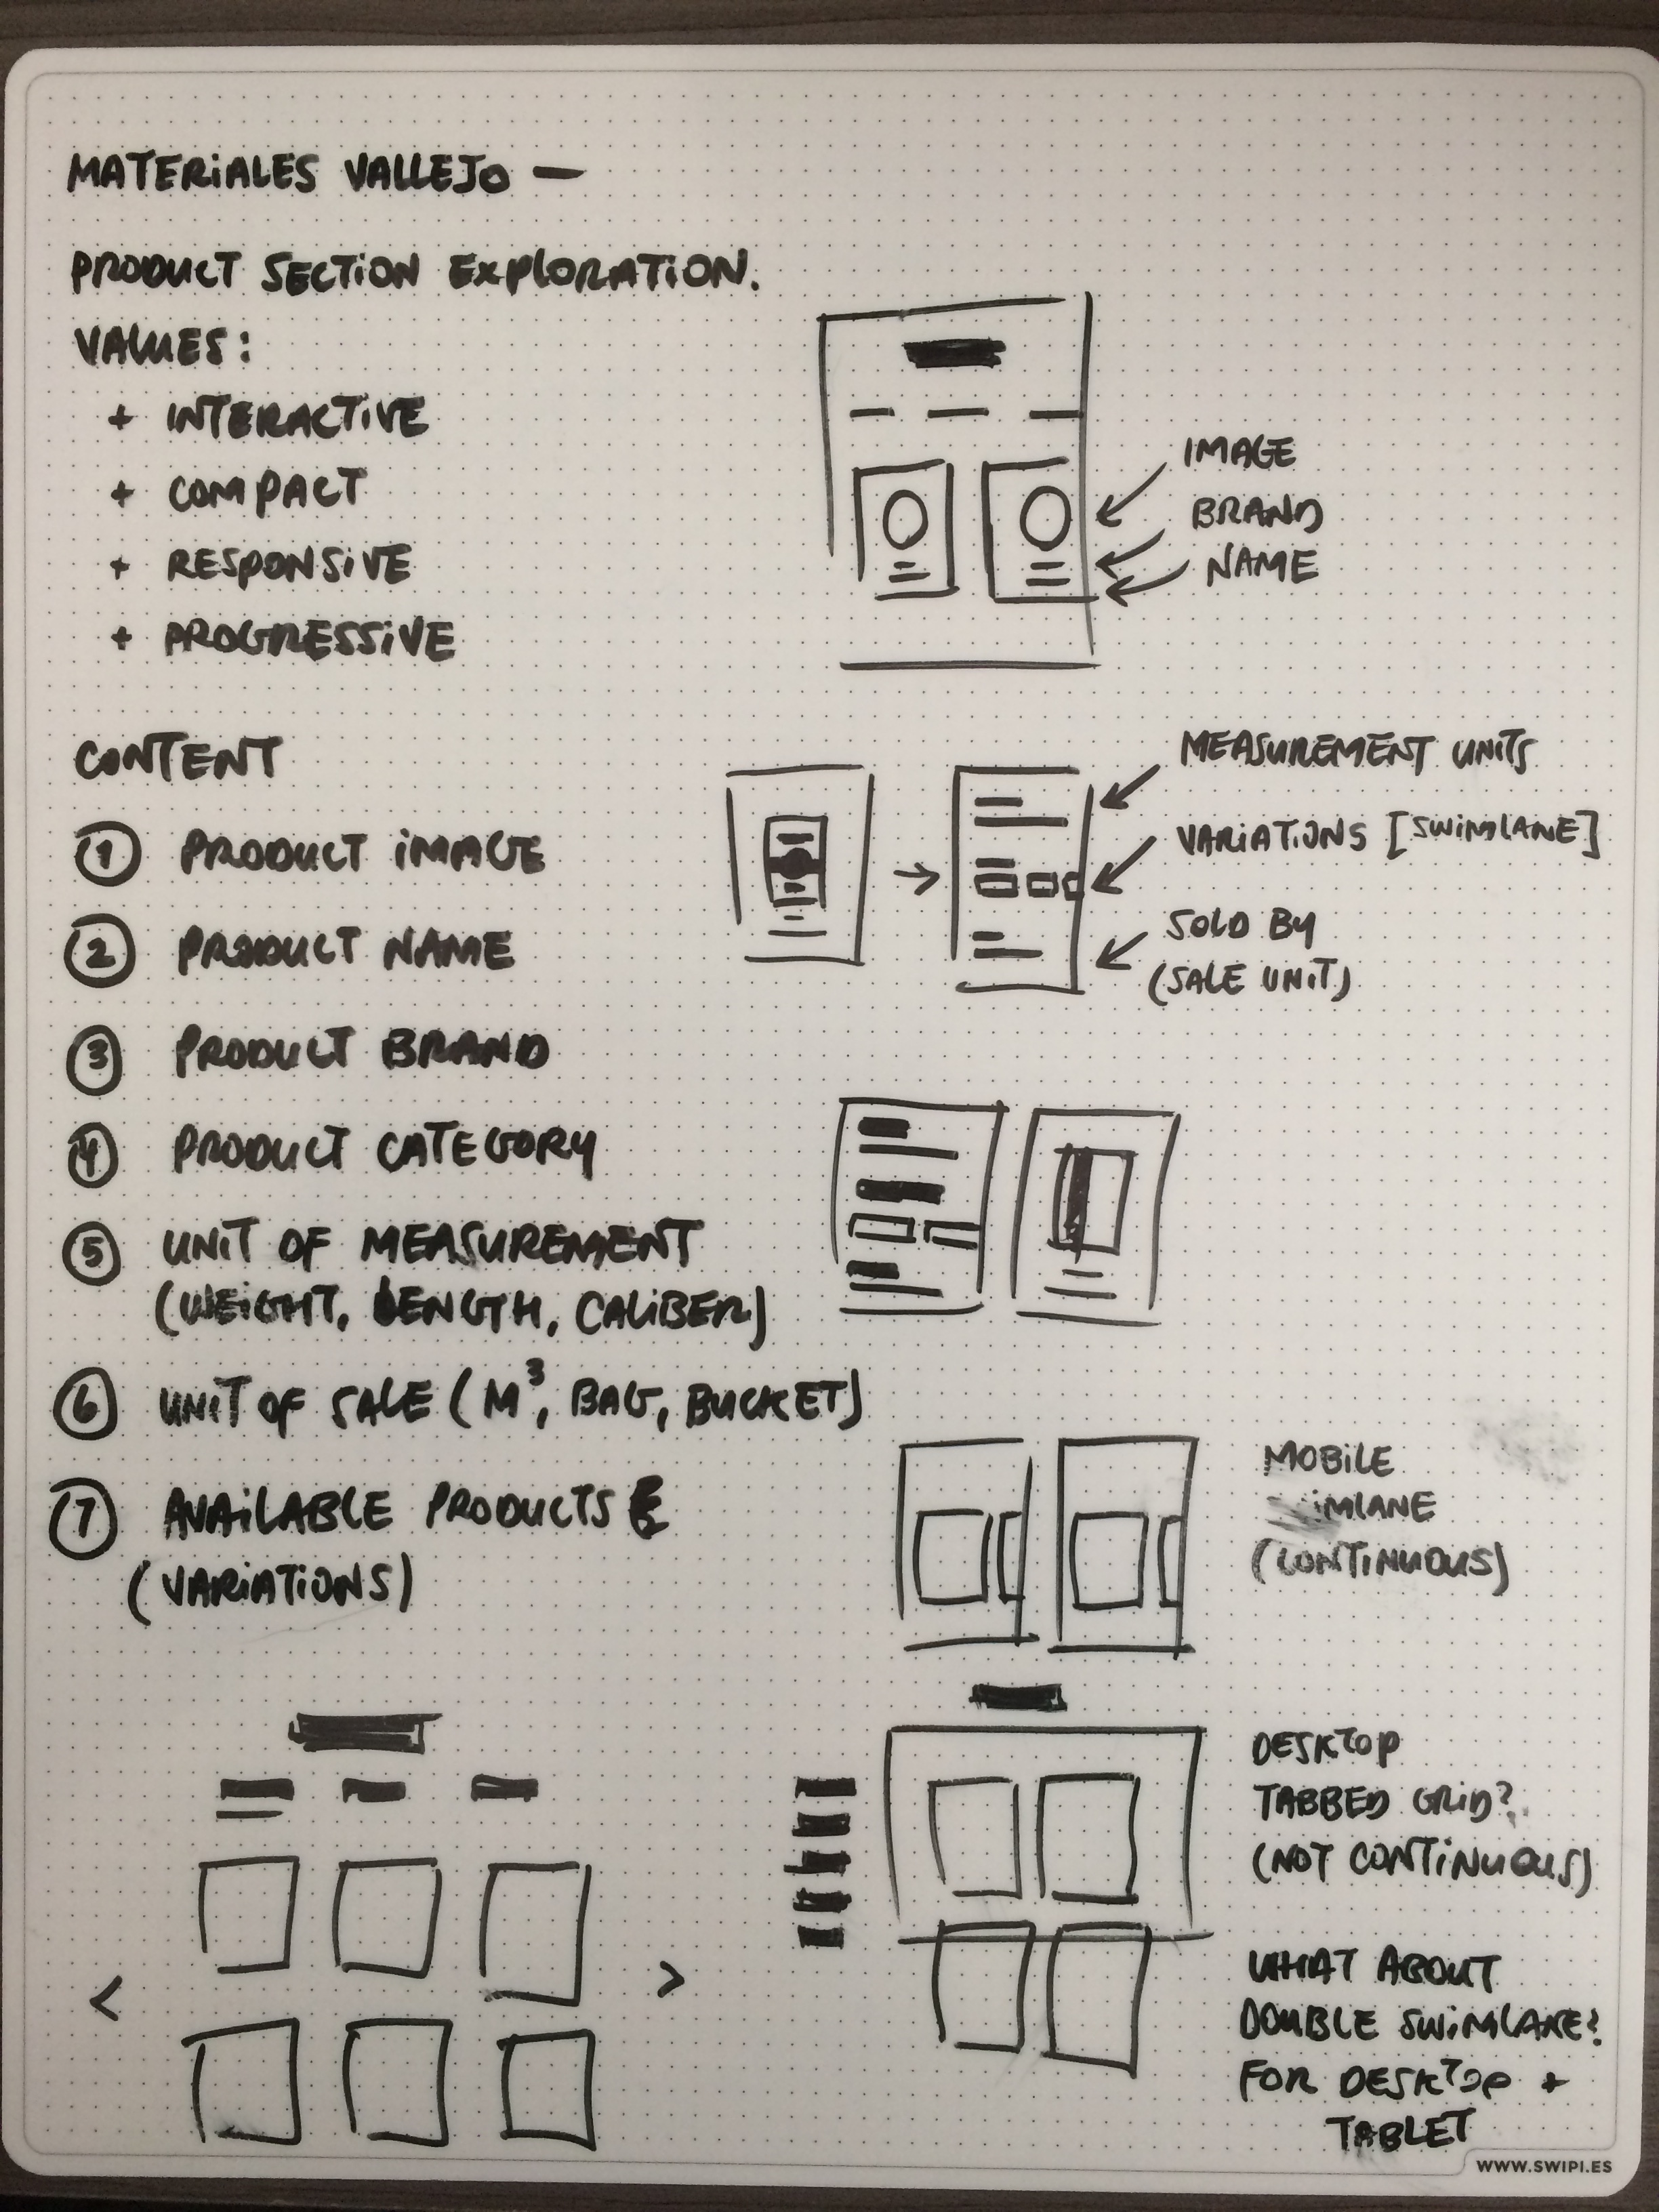 MATERIALES VALLEJO —
PRODUCT SECTION EXPLORATION.
VALUES:
+ INTERACTIVE
+ COMPACT
+ RESPONSIVE
+ PROGRESSIVE
IMAGE
BRAND
NAME
CONTENT
① PRODUCT IMAGE
② PRODUCT NAME
③ PRODUCT BRAND
④ PRODUCT CATEGORY
⑤ UNIT OF MEASUREMENT
(WEIGHT, LENGTH, CALIBER)
⑥ UNIT OF SALE (M³, BAG, BUCKET)
⑦ AVAILABLE PRODUCTS
(VARIATIONS)
MEASUREMENT UNITS
VARIATIONS [SWIMLANE]
SOLD BY
(SALE UNIT)
MOBILE
(CONTINUOUS)
DESKTOP
TABBED GRID?
(NOT CONTINUOUS)
WHAT ABOUT
DOUBLE SWIMLANE?
FOR DESKTOP +
TABLET
WWW.SWIPI.ES